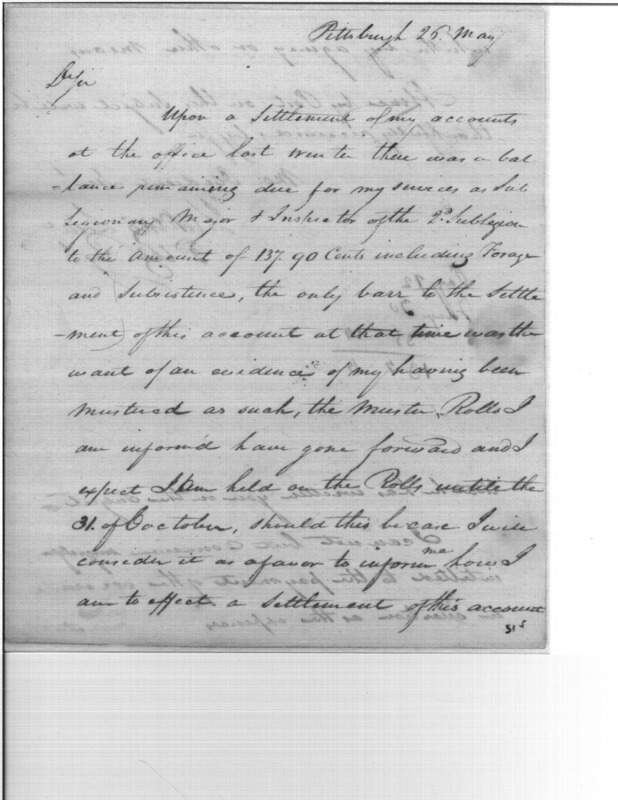 Pittsburgh 26 May
D Sir
Upon a Settlement of my accounts
at the office last winter there was a bal
-lance remaining due for my services as Sub
Legionary Major & Inspector of the 2d. Sublegion
to the amount of 137. 90 Cents including Forage
and Subsistence, the only barr to the Settle
-ment of this account at that time was the
want of an evidence of my having been
mustered as such, the Muster Rolls I
am informd have gone forward and I
expect I am held on the Rolls untile the
31. of October, should this be case I will
consider it as a favor to inform me how I
am to effect a Settlement of this account